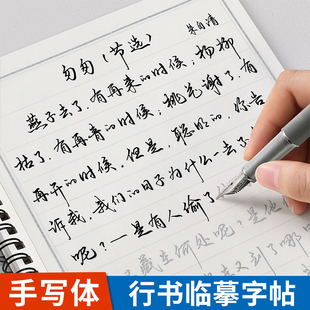 匆匆（节选）
朱自清
燕子去了，有再来的时候；杨柳
枯了，有再青的时候；桃花谢了，有
再开的时候。但是，聪明的，你告
诉我，我们的日子为什么一去了
呢？—是有人偷了
藏在何处呢？是他
又到了哪
手写体
行书临摹字帖